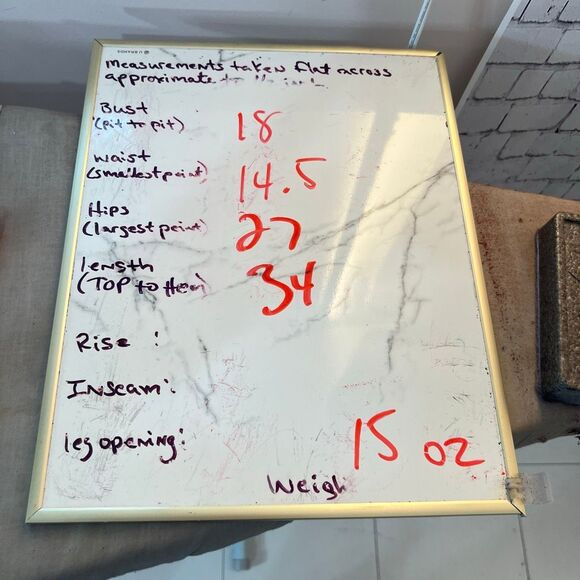 Measurements taken flat across
approximate
Bust 18
(pit to pit)
waist 14.5
(smallest point)
Hips 27
(largest point)
length 34
(TOP to Hem)
Rise :
Inseam:
leg opening:
15 oz
Weigh